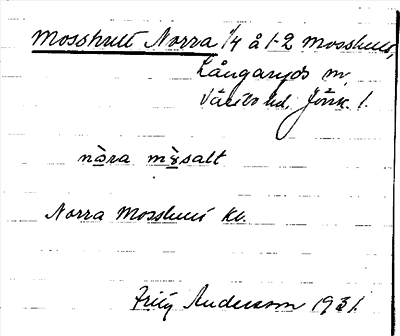 Mosshult Norra 1/4 å 1-2 Mosshult,
Långaryds sn,
Västbo hd. Jönk. l.
nòra mɤ̀salt
Norra Mosshult kv.
Fritz Andersson 1931.